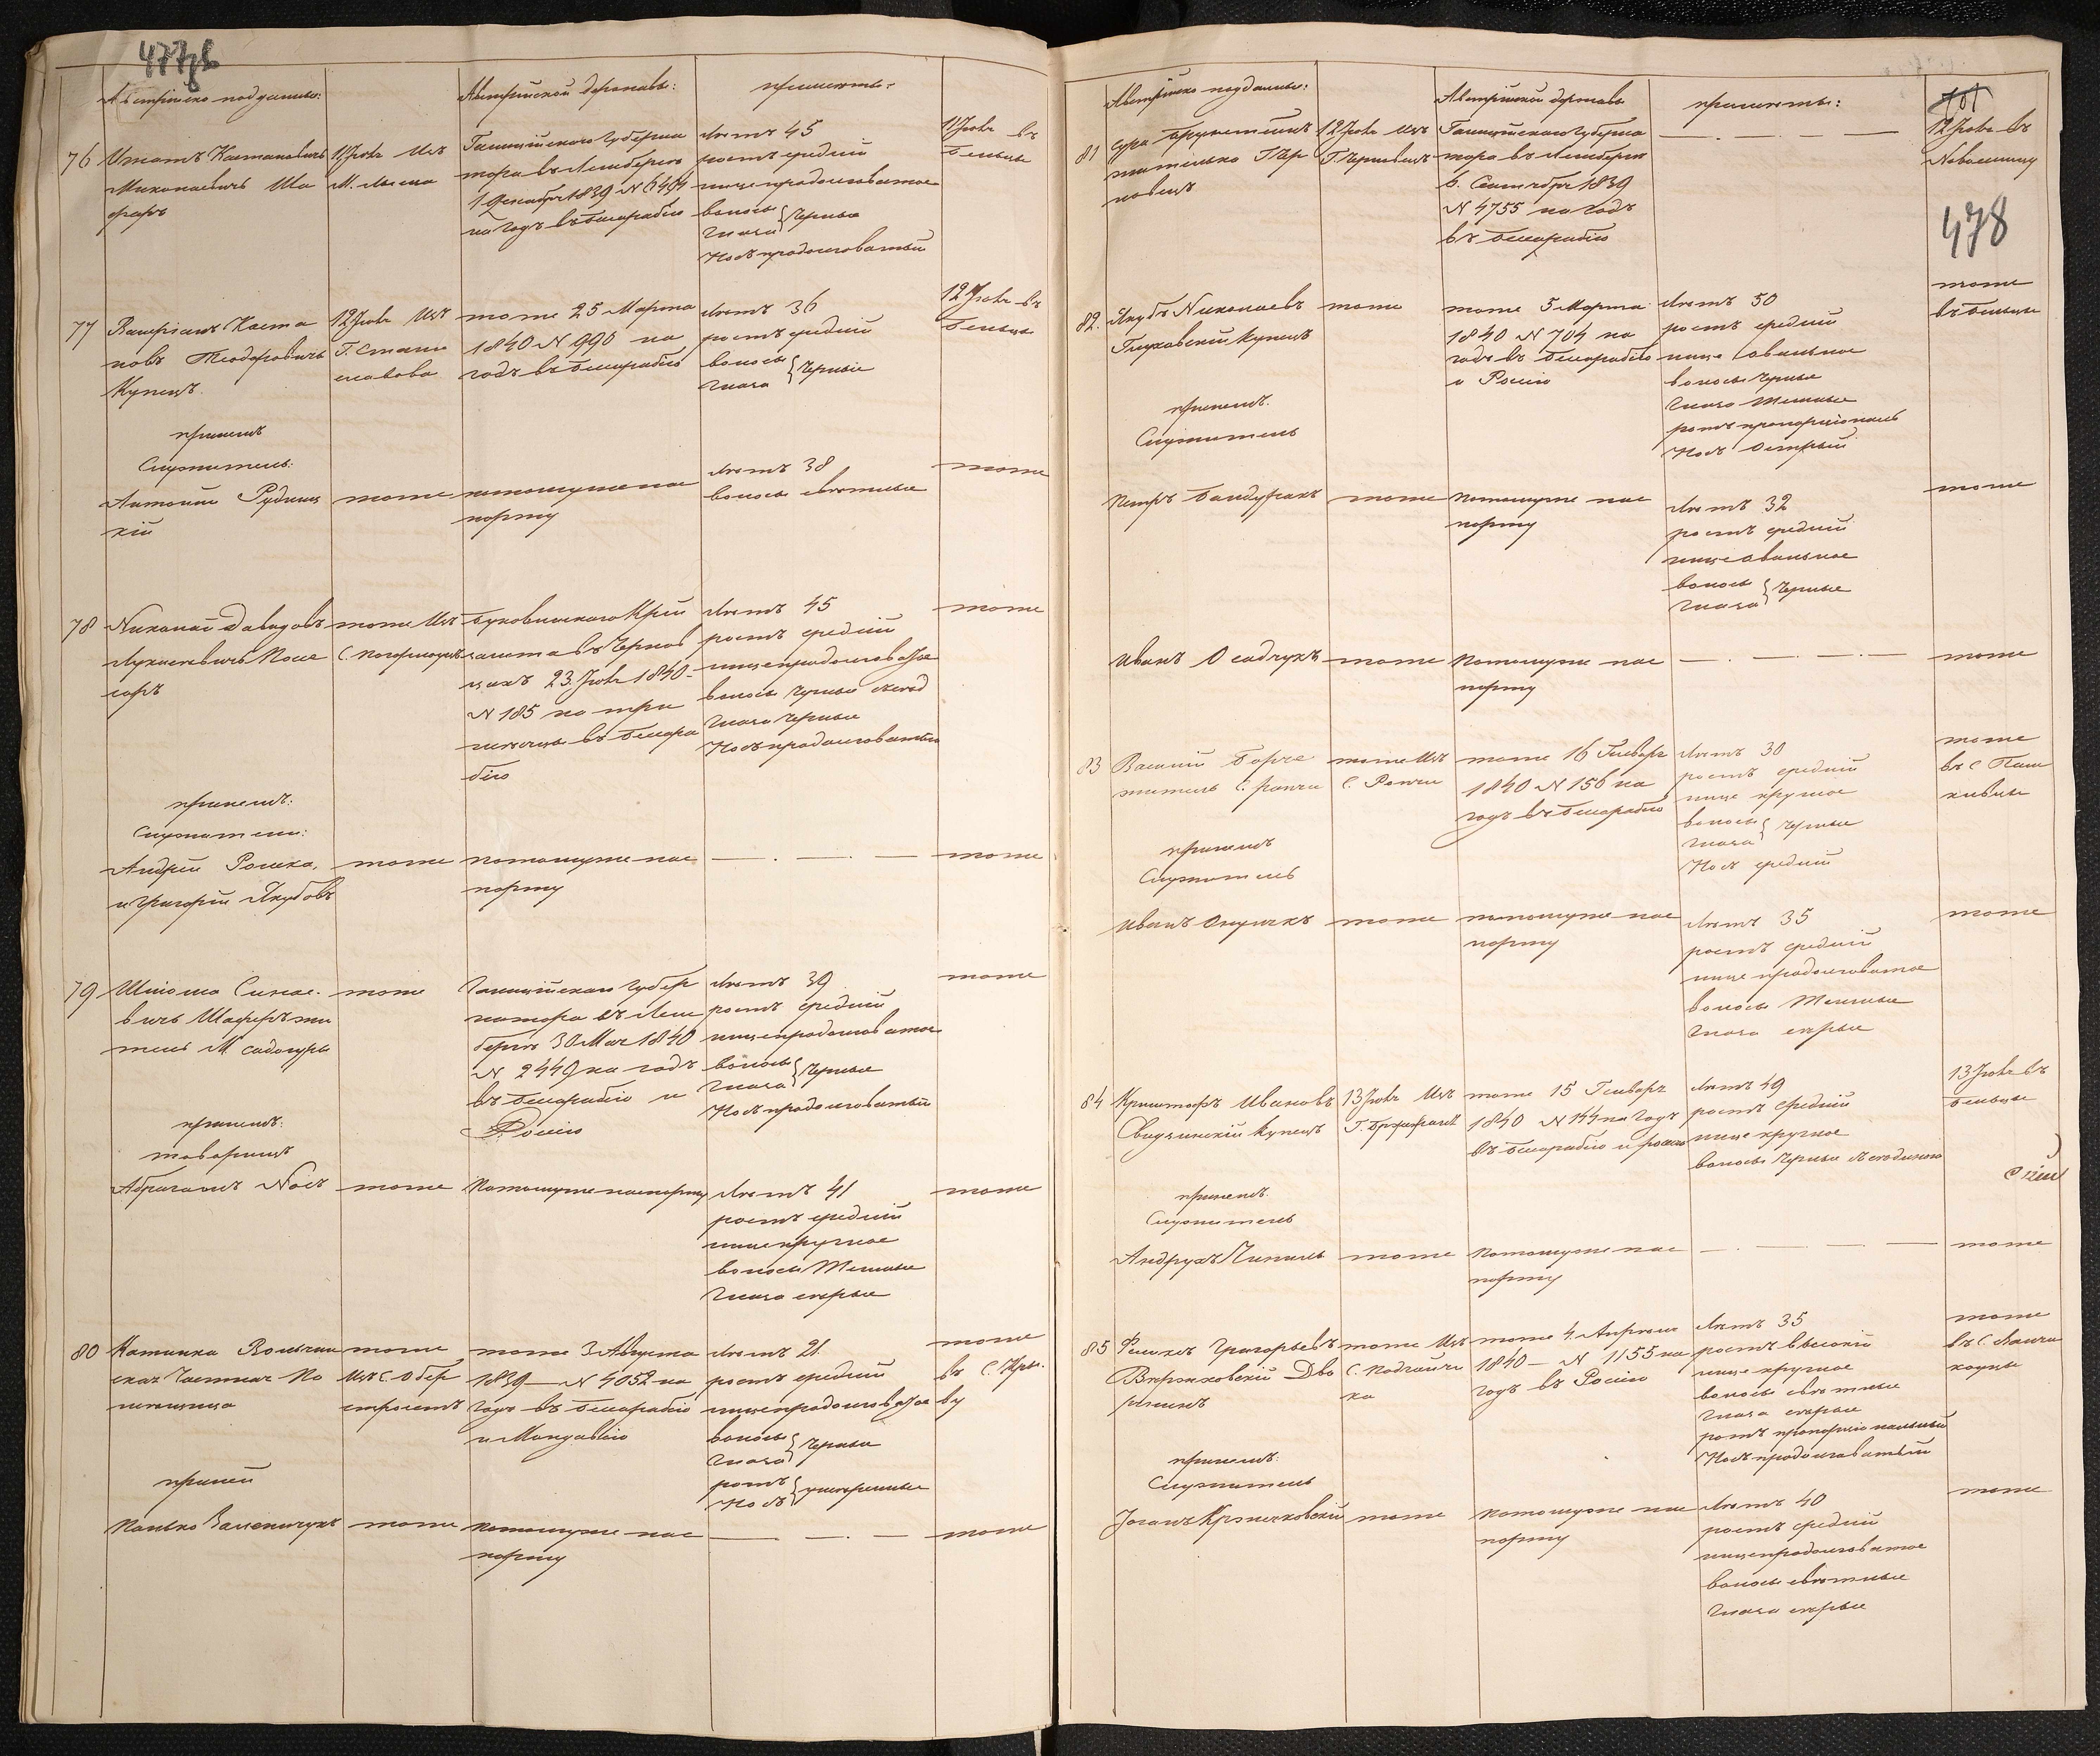 477об
Австрійско подданные:
Австрійской державы:
примѣты:
76 Игнатъ Кастановичъ
Миколаевичъ Ша
феръ
11 Іюля Изъ
М. Лысца
Галиційскаго Губерна
тора въ Лемберге
1 Декабря 1839 N 6494
на годъ въ Бессарабію
Лѣтъ 45
ростъ средній
лице продолговатое
волосы
глаза } черные
Носъ продолговатый
11 Іюля въ
Бельцы
77 Валеріанъ Каета
новъ Теодоровичъ
Купецъ.
12 Іюля Изъ
Г. Стани
славова
тоже 25 Марта
1840 N 990 на
годъ въ Бессарабію
Лѣтъ 36
ростъ средній
волосы
глаза } черные
12 Іюля въ
Бельцы
при немъ
Служитель:
Антоній Рудниц
кій
тоже
по томуже пас
порту
Лѣтъ 38
волосы свѣтлые
тоже
78 Николай Давидовъ
Лукасевичъ Посе
соръ
тоже Изъ
С. Погориловъ
Буковинскаго Крей
цамта въ Чернов
цахъ 23. Іюля 1840
N 185 на три
мѣсяца въ Бессара
бію
Лѣтъ 45
ростъ средній
лице продолговатое
волосы черные
глаза черные
Носъ продолговатый
тоже
при немъ:
Служители:
Андрей Рошка,
и Григорій Якубовъ
тоже
по томуже пас
порту
тоже
79 Шліома
вичъ Шаферъ жи
тель М. Садогуры
тоже
Галиційскаго Губер
натора въ Лем
берге 30 Мая 1840
N 2449 на годъ
въ Бессарабію и
Россію
Лѣтъ 39
ростъ средній
лице продолговатое
волосы
глаза } черные
Носъ продолговатый
тоже
при немъ:
товарищъ
Абрагамъ
тоже
По томуже паспорту
Лѣтъ 41
ростъ средній
лице круглое
волосы Темные
глаза сѣрые
тоже
80 Катинка Вольчин
ская Частная По
мѣщица
тоже
Изъ С. Обер
тоже 3 Августа
1839 — N 4052 на
годъ въ Бессарабію
и Молдавію
Лѣтъ 21
ростъ средній
лице продолговатое
волосы
глаза } черные
ротъ
Носъ } умѣренные
тоже
въ С.
при ней
Панько
тоже
по томуже пас
порту
тоже
Австрійско подданные:
Австрійской державы
примѣты:
101
478
81
12 Іюля Изъ
Г. Черновецъ
Галиційскаго Губерна
тора въ Лемберге
6. Сентября 1839
N 4755 на годъ
въ Бессарабію
12 Іюля въ
Новоселицу
82. Якубъ Николаевъ
Глуховскій Купецъ
тоже
тоже 5 Марта
1840 N 704 на
годъ въ Бессарабію
и Россію
Лѣтъ 50
ростъ средній
лице овальное
волосы черные
глаза Темные
ротъ пропорціоналъ
Носъ Острый
тоже
въ Бельцы
при немъ.
Служитель
Петръ Бандуракъ
тоже
по томуже пас
порту
Лѣтъ 32
ростъ средній
лице овальное
волосы
глаза } черные
тоже
Иванъ Осадчукъ
тоже
по томуже пас
порту
тоже
83 Василій Борче
житель С. Ранчи
тоже Изъ
С. Ранчи
тоже 16 Генваря
1840 N 156 на
годъ въ Бессарабію
Лѣтъ 30
ростъ средній
лице круглое
волосы
глаза } черные
Носъ средній
тоже
въ С.
при немъ
Служитель
Иванъ
тоже
по томуже пас
порту
Лѣтъ 35
ростъ средній
лице продолговатое
волосы Темные
глаза сѣрые
тоже
84 Криштофъ Ивановъ
Свидзинскій Купецъ
13 Іюля Изъ
тоже 15 Генваря
1840 N 144 на годъ
въ Бессарабію и россію
Лѣтъ 49
ростъ Средній
лице круглое
волосы черные
13 Іюля въ
Бельцы
при немъ.
Служитель
Андрухъ
тоже
По томуже пас
порту
тоже
85 Феликсъ Григорьевъ
Вержховскій Дво
рянинъ
тоже Изъ
С. Подгайчи
ка
тоже 4. Апрѣля
1840 — N 1155 на
годъ въ Россію
Лѣтъ 35
ростъ высокій
лице круглое
волосы свѣтлые
глаза сѣрые
ротъ пропорціональный
Носъ продолговатый
тоже
въ С.
при немъ.
Служитель
тоже
По томуже пас
порту
Лѣтъ 40
ростъ средній
лице продолговатое
волосы свѣтлые
глаза сѣрые
тоже